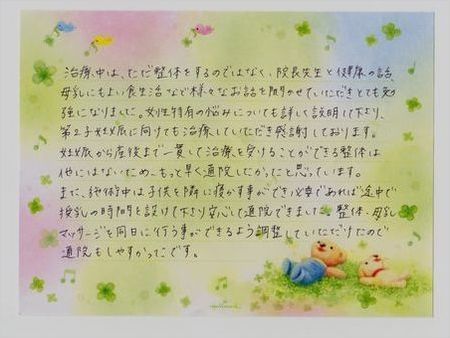 治療中は、ただ整体をするのではなく、院長先生と健康の話、
母乳にもよい食生活など様々なお話を聞かせていただきとても勉
強になりました。女性特有の悩みについても詳しく説明して下さり、
第2子妊娠に向けても治療していただき感謝しております。
妊娠から産後まで一貫して治療を受けることができる整体は
他にはないため、もっと早く通院したかったと思っています。
また、施術中は子供を隣に寝かす事ができ必要であれば途中で
授乳の時間を設けて下さり安心して通院できました。整体、母乳
マッサージを同日に行う事ができるよう調整していただけたので
通院もしやすかったです。